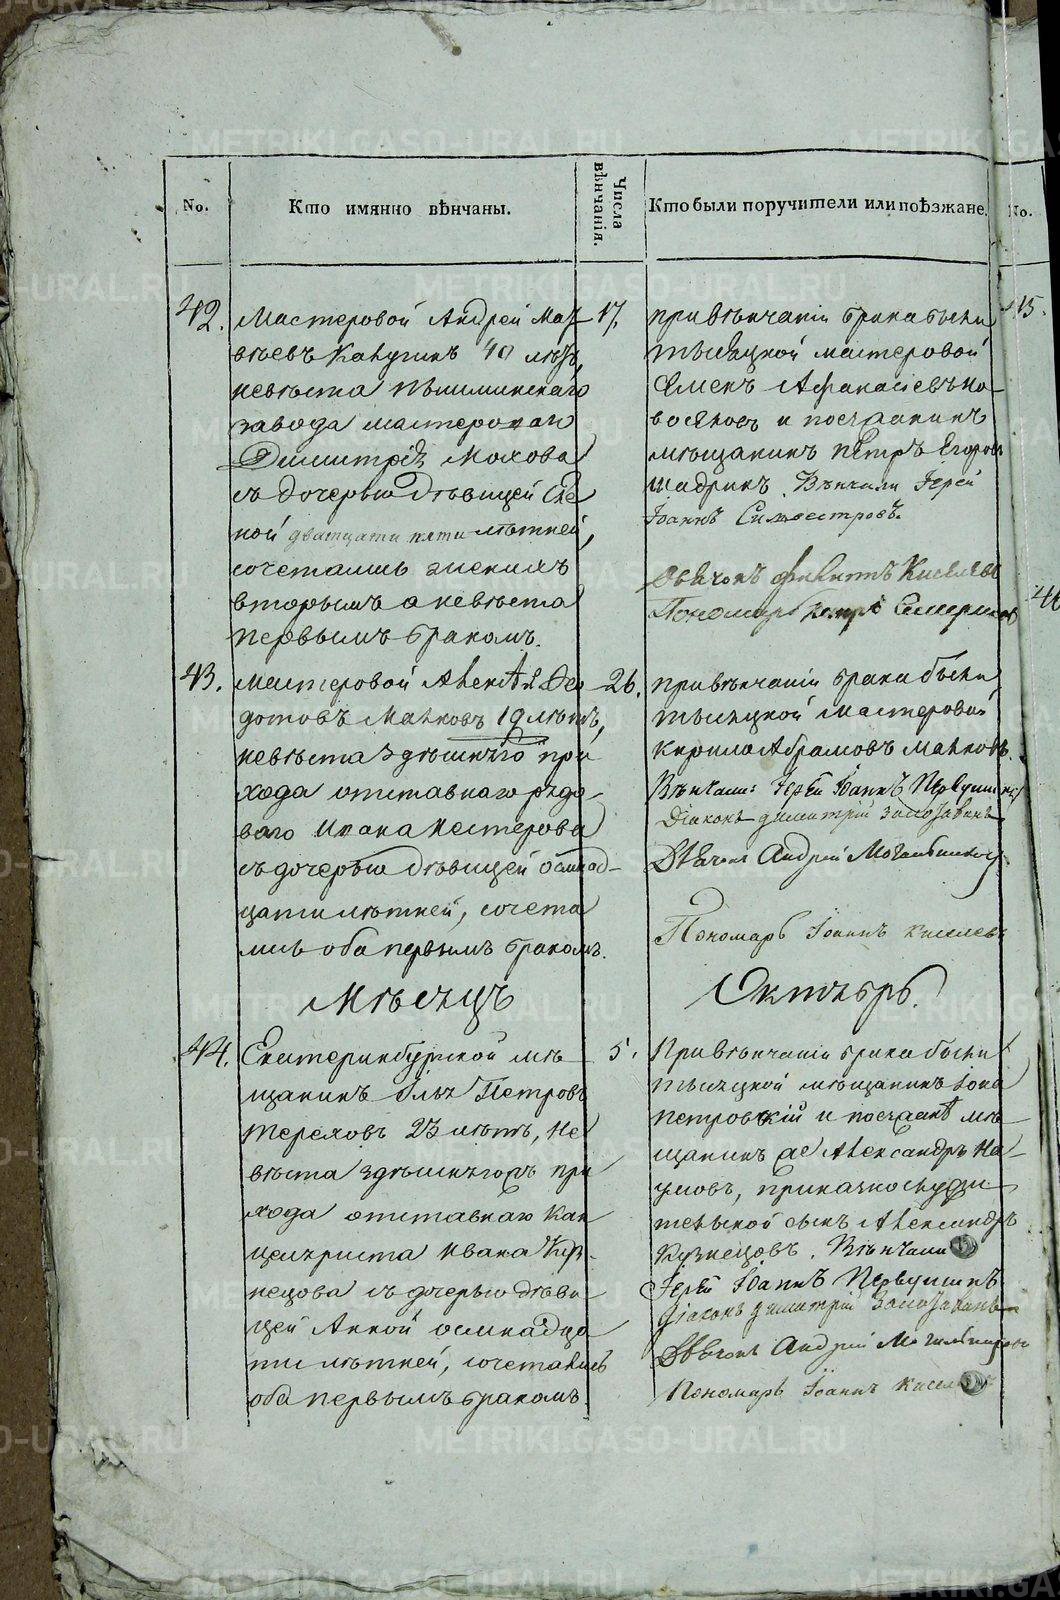 No.
Кто имянно вѣнчаны.
Числа вѣнчанія.
Кто были поручители или поѣзжане.
No.
42.
Мастеровой Андрей Мат
вѣевъ 40 лѣтъ,
невѣста Пышминскаго
завода мастероваго
Димитрія Мохова
съ дочерью дѣвицей Еле
ной дватцати пяти лѣтней,
сочетались женихъ
вторымъ а невѣста
первымъ бракомъ.
17.
При вѣнчаніи брака были
тысяцкой мастеровой
Семенъ Афанасіевъ
и поезжанинъ
мѣщанинъ Петръ Егоровъ
Шадринъ. Вѣнчали Іерей
Іоаннъ Сильвестровъ.
Дьячокъ Киселевъ
Пономарь Петръ
43.
Мастеровой Алексѣй Ѳео
дотовъ Малковъ 19 лѣтъ,
невѣста здѣшняго при
хода отставнаго рядо-
ваго Ивана Нестерова
съ дочерью дѣвицей осмнад-
цати лѣтней, сочета
лись оба первымъ бракомъ.
26.
При вѣнчаніи брака были
тысяцкой мастеровой
Кирило Абрамовъ Малковъ.
Вѣнчали: Іерей Іоаннъ Первушинъ
Діаконъ Димитрій
Дьячокъ Андрей Могильниковъ
Пономарь Іоаннъ Киселевъ
Мѣсяцъ
Октябрь.
44.
Екатеринбургской мѣ
щанинъ Илья Петровъ
Тереховъ 23 лѣтъ, не
вѣста здѣшняго при
хода отставнаго кан
целяриста Ивана Куз-
нецова съ дочерью дѣви
цей Анной осмнадца
ти лѣтней, сочетались
оба первымъ бракомъ.
5.
При вѣнчаніи брака были
тысяцкой мѣщанинъ Іона
Петровскій и поезжане мѣ
щанинъ Александръ На-
умовъ,
сынъ Александръ
Кузнецовъ. Вѣнчали
Іерей Іоаннъ Первушинъ
Діаконъ Димитрій
Дьячокъ Андрей Могильниковъ
Пономарь Іоаннъ Киселевъ
METRIKI.GASO-URAL.RU